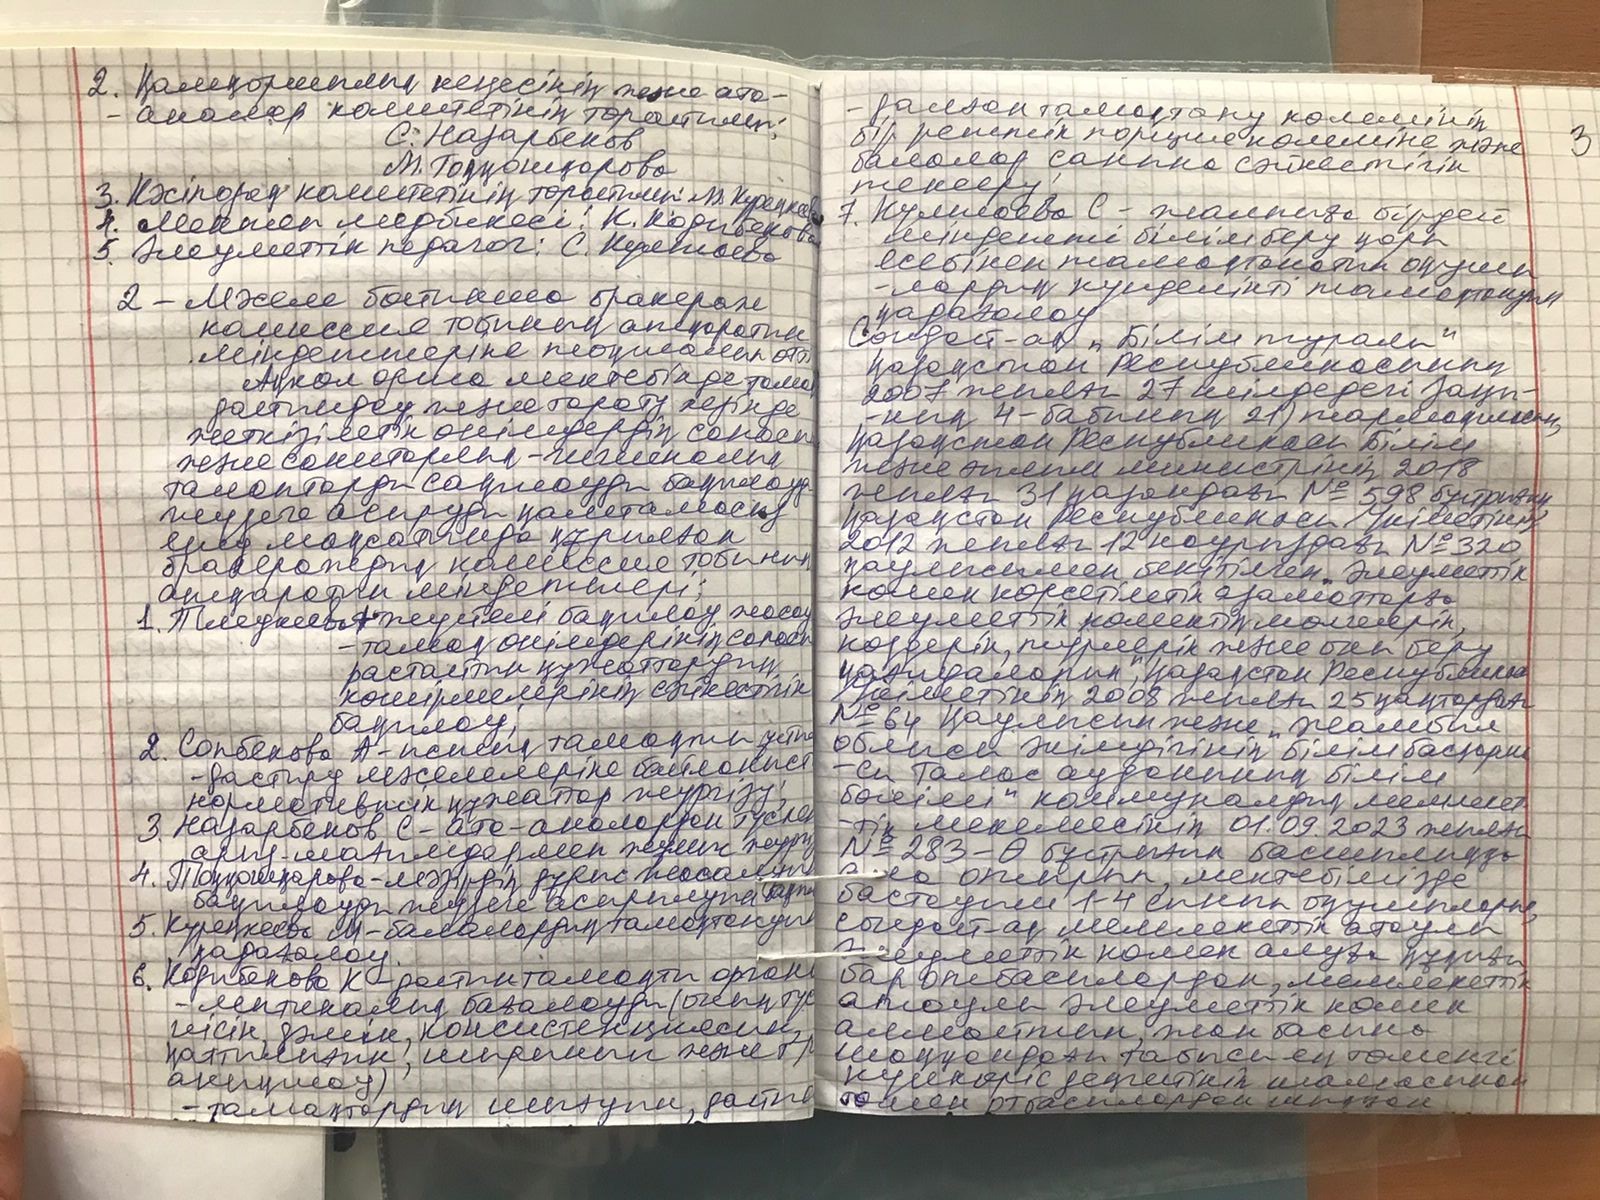 2. Қамқоршылық кеңесінің және ата-
- аналар комитетінің төрағалары:
С. Назарбеков
М. Тоққошқарова
3. Кәсіподақ комитетінің төрағасы: М. Курецкева
4. Мектеп медбикесі: К. Кадибекова
5. Әлеуметтік педагог: С. Кулшаева
2 - Мәселе бойынша бракераж
комиссия тобының атқаратын
міндеттеріне тоқталып өтті
Ақкол орта мектебінде тама
дайындау және тарату кезінде
жеткізілетін өнімдердің сапасы
және санитарлық-гигиеналық
талаптарды сақтауды бақылауды
жүзеге асыруды қамтамасыз
ету мақсатында құрылған
бракераждың комиссия тобының
атқаратын міндеттері;
1. Тледиева - жүйелі бақылау жасау
- тамақ өнімдерінің сапасы
растайтын құжаттардың
көшірмелерінің сәйкестігін
бақылау;
2. Сопбекова А - ыстық тамақты ұйым
- дастыру мәселелеріне байланысты
нормативтік құжаттар жүргізу;
3. Назарбеков С - ата-аналардан түскен
арыз-шағымдармен жұмыс жүргі
4. Тоққошқарова - мәзірдің дұрыс жасалуын
бақылауды жүзеге асырылуын бақы
5. Курецкева М - балалардың тамақтануын
қадағалау.
6. Кадибекова К - дайын тамақты органо
- лептикалық бағалауды (оның түс
иісін, дәмін, консистенциясын,
қаттылығын, шырынын және т/б
анықтау)
- тағамдардың шығуын, дайын
- далған тамақтану көлемінің
бір реттік порция көлеміне және
балалар санына сәйкестігін
тексеру;
7. Кулшаева С - жалпыға бірдей
міндетті білім беру қоры
есебінен тамақтанатын оқушы
- лардың күнделікті тамақтануын
қадағалау
Сондай-ақ „Білім туралы"
Қазақстан Республикасының
2007 жылғы 27 шілдедегі Заңы-
- ның 4-бабының 21) тармақшасы,
Қазақстан Республикасы Білім
және ғылым министрінің 2018
жылғы 31 қазандағы № 598 бұйрығы,
Қазақстан Республикасы Үкіметінің
2012 жылғы 12 наурыздағы № 320
қаулысымен бекітілген „Әлеуметтік
көмек көрсетілетін азаматтарға
әлеуметтік көмектің мөлшерін,
көздерін, түрлерін және оны беру
қағидаларын", Қазақстан Республикасы
Үкіметінің 2008 жылғы 25 қаңтардағы
№ 64 қаулысын және „Жамбыл
облысы әкімдігінің білім басқарма
- сы Талас ауданының білім
бөлімі" коммуналдық мемлекет
- тік мекемесінің 01.09.2023 жылғы
№ 283-Ө бұйрығын басшылыққа
ала отырып, мектебімізде
бастауыш 1-4 сынып оқушылары,
сондай-ақ мемлекеттік атаулы
әлеуметтік көмек алуға құқығы
бар отбасылардан, мемлекеттік
атаулы әлеуметтік көмек
алмайтын, жан басына
шаққандағы табысы ең төменгі
күнкөріс деңгейінің шамасынан
төмен отбасылардан шыққан
3